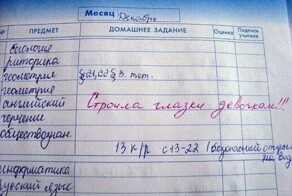 Месяц Декабрь
№ ПРЕДМЕТ ДОМАШНЕЕ ЗАДАНИЕ Оценка Подпись учителя
биология
риторика
геометрия § 21, 22 §
геометрия
английский Строила глазки девочкам!!!
черчение
обществозн.
13 к/р с 13-22 безопасный отдых на вод
информатика
русский язык